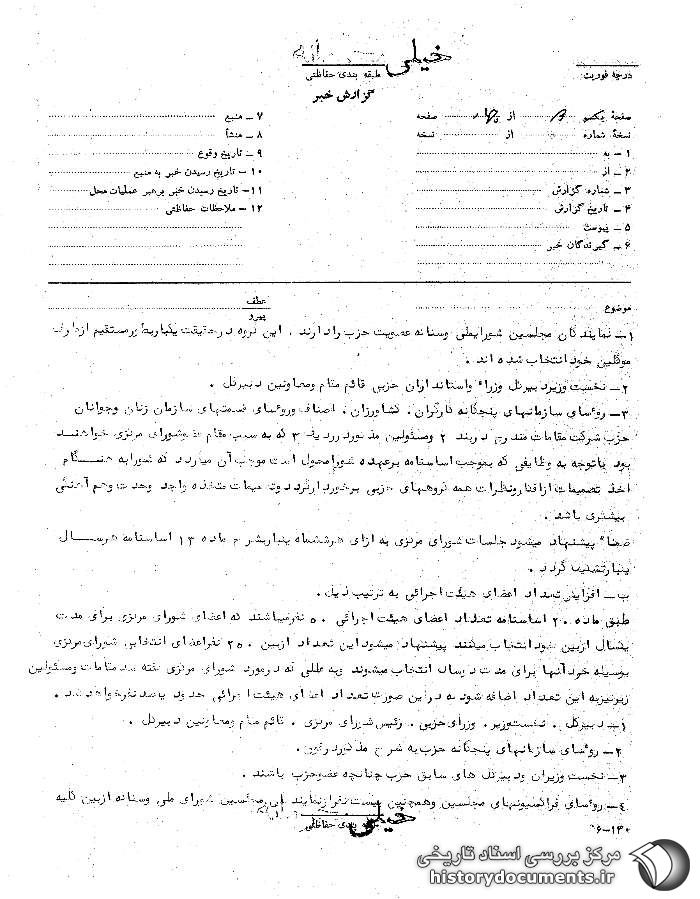 خیلی
طبقه بندی حفاظتی
درجهٔ فوریت:
گزارش خبر
صفحهٔ یکم از صفحه
نسخهٔ شماره از نسخه
۱ ـ به
۲ ـ از
۳ ـ شماره گزارش
۴ ـ تاریخ گزارش
۵ ـ پیوست
۶ ـ گیرندگان خبر
۷ ـ منبع
۸ ـ منشأ
۹ ـ تاریخ وقوع
۱۰ ـ تاریخ رسیدن خبر به منبع
۱۱ ـ تاریخ رسیدن خبر برهبر عملیات محل
۱۲ ـ ملاحظات حفاظتی
موضوع
عطف
پیرو
۱ـ نمایندگان مجلسین شورایملی وسناکه عضویت حزب رادارند . این گروه درحقیقت یکباربطورمستقیم ازطرف
موکلین خودانتخاب شده اند .
۲ـ نخست وزیردبیرکل وزراء واستانداران حزبی قائم مقام ومعاونین دبیرکل .
۳ـ روسای سازمانهای پنجگانه کارگران ، کشاورزان ، اصناف وروسای قسمتهای سازمان زنان وجوانان
حزب شرکت مقامات مندرج دربند ۲ ومسئولین مذکوردرردیف ۳ که به سبب مقام عضوشورای مرکزی خواهند
بود باتوجه به وظایفی که بموجب اساسنامه برعهده شورامحول است موجب آن میگردد که شورابه هنگام
اخذ تصمیمات ازافکارونظرات همه گروههای حزبی برخوردارگرددوتصمیمات متخذه واجد وحدت وهم آهنگی
بیشتری باشد .
ضمنا" پیشنهاد میشود جلسات شورای مرکزی به ازای هرششماه یکباربشرح ماده ۱۳ اساسنامه هرسال
یکبارتشکیل گردد .
ب ـ افزایش تعداد اعضای هیئت اجرائی به ترتیب ذیل .
طبق ماده ۲۰ اساسنامه تعداد اعضای هیئت اجرائی ۵۰ نفرمیباشند که اعضای شورای مرکزی برای مدت
یکسال ازبین خودانتخاب میکنند پیشنهاد میشوداین تعداد ازبین ۲۵۰ نفراعضای انتخابی شورای مرکزی
بوسیله خودآنها برای مدت دوسال انتخاب میشوند وبه عللی که درمورد شورای مرکزی گفته شد مقامات ومسئولین
زیرنیزبه این تعداد اضافه شوند که دراین صورت تعداد اعضای هیئت اجرائی حدود یکصدنفرخواهدشد .
۱ـ دبیرکل . نخست وزیر . وزرای حزبی . رئیس شورای مرکزی . قائم مقام ومعاونین دبیرکل .
۲ـ روسای سازمانهای پنجگانه حزب به شرح مذکوردرفوق .
۳ـ نخست وزیران ودبیرکل های سابق حزب چنانچه عضوحزب باشند .
۴ـ روسای فراکسیونهای مجلسین وهمچنین بیست نفرازنمایندگان مجلسین شورای ملی وسناکه ازبین کلیه
طبقه بندی حفاظتی
خیلی
۶-۱۳۰
مرکز بررسی اسناد تاریخی
historydocuments.ir